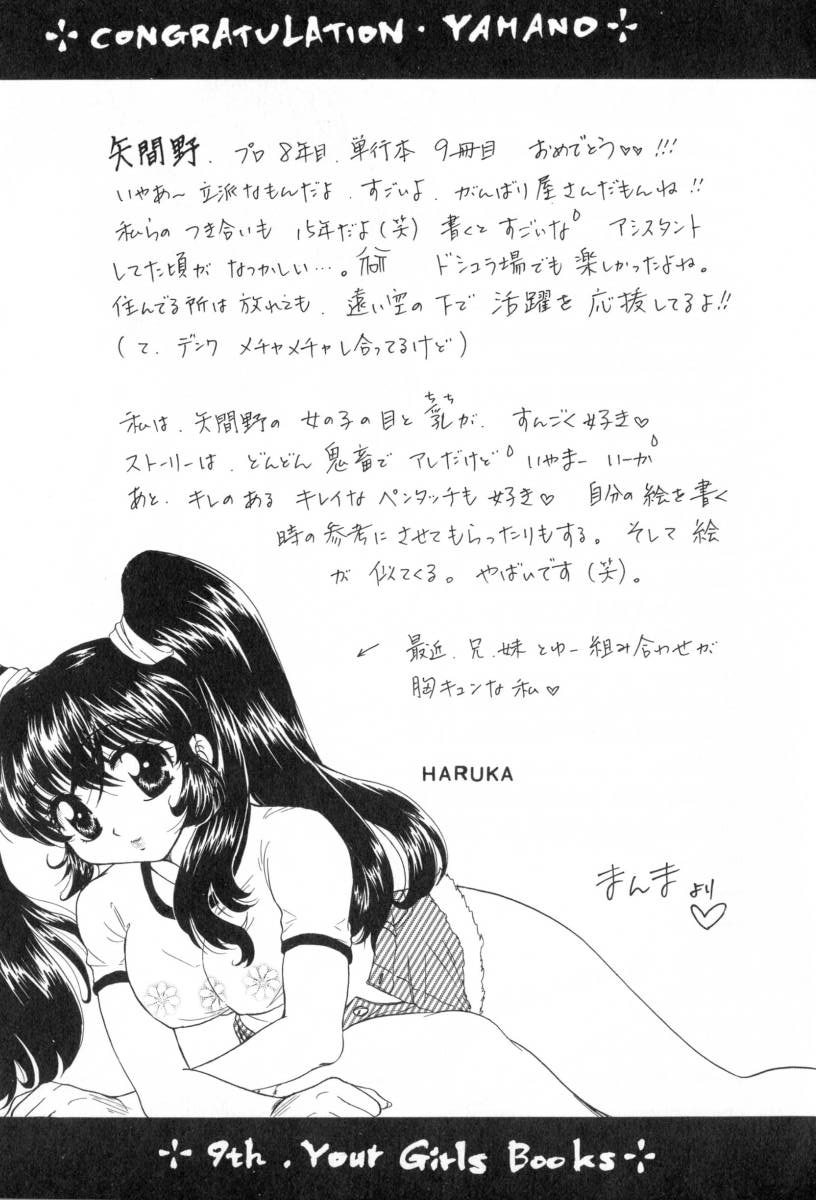 CONGRATULATION・YAMANO
矢間野、プロ8年目、単行本 9冊目 おめでとう♡♡!!!
いやあ〜立派なもんだよ、すごいよ、がんばり屋さんだもんね!!
私らのつき合いも 15年だよ(笑)書くとすごいな アシスタント
してた頃がなつかしい…。 ドシュラ場でも楽しかったよね。
住んでる所は放れても、遠い空の下で活躍を応援してるよ!!
(て、デンワ メチャメチャし合ってるけど)
私は、矢間野の女の子の目と乳が、すんごく好き♡
ちち
ストーリーは、どんどん鬼畜でアレだけど いやまーいーか
あと、キレのあるキレイなペンタッチも好き♡ 自分の絵を書く
時の参考にさせてもらったりもする。そして絵
が似てくる。やばいです(笑)。
← 最近、兄、妹とゆー組み合わせが
胸キュンな私♡
HARUKA
まんまより♡
9th . Your Girls Books